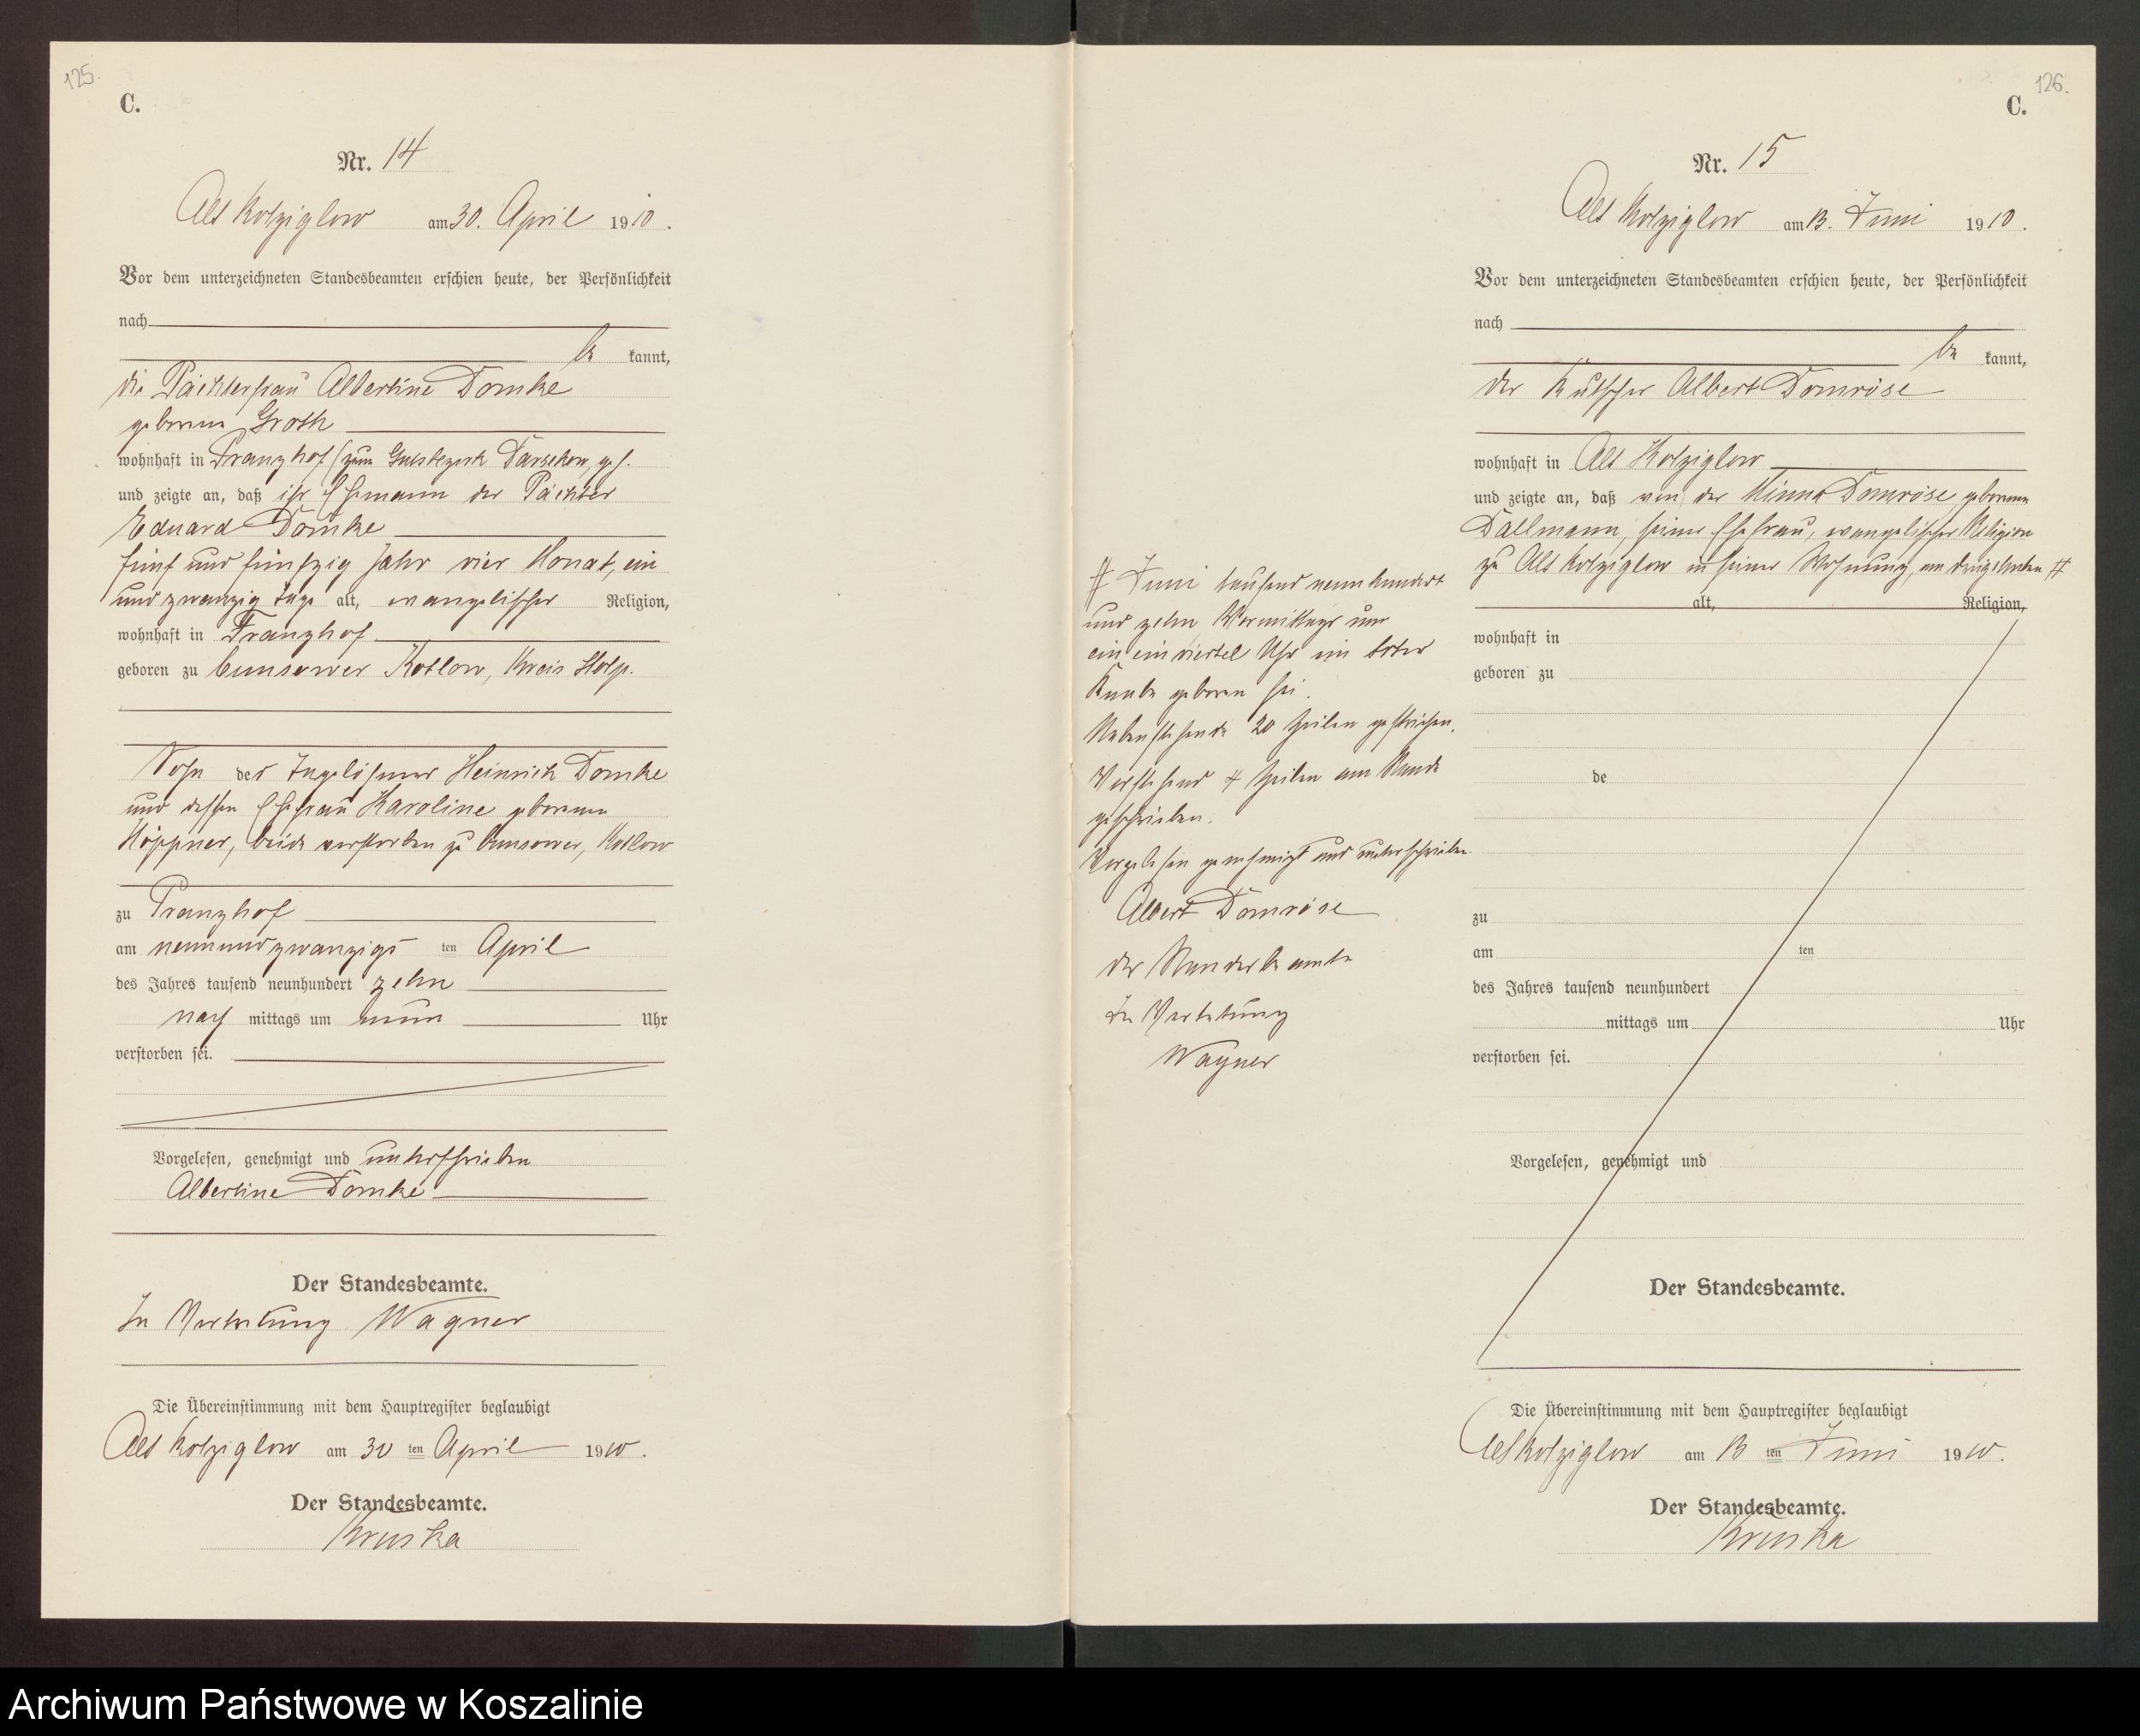 125.
C.
Nr. 14
Alt Kolziglow am 30. April 1910.
Vor dem unterzeichneten Standesbeamten erschien heute, der Persönlichkeit
nach
be kannt,
die Pächterfrau Albertine Domke
geborene Groth
wohnhaft in Franzhof (zum Gutsbezirk Darsekow, geh.
und zeigte an, daß ihr Ehemann der Pächter
Eduard Domke
fünf und fünfzig Jahr vier Monat, ein
und zwanzig Tage alt, evangelischer Religion,
wohnhaft in Franzhof
geboren zu Cunsower Kotlow, Kreis Stolp.
Sohn des Tagelöhner Heinrich Domke
und dessen Ehefrau Karoline geborenen
Höppner, beide verstorben zu Cunsower, Kotlow
zu Franzhof
am neunundzwanzigs ten April
des Jahres tausend neunhundert zehn
nach mittags um neun Uhr
verstorben sei.
Vorgelesen, genehmigt und unterschrieben
Albertine Domke
Der Standesbeamte.
In Vertretung Wagner
Die Übereinstimmung mit dem Hauptregister beglaubigt
Alt Kolziglow am 30 ten April 1910.
Der Standesbeamte.
Kruska
126.
C.
Nr. 15
Alt Kolziglow am 13. Juni 1910.
Vor dem unterzeichneten Standesbeamten erschien heute, der Persönlichkeit
nach
be kannt,
der Kutscher Albert Domröse
wohnhaft in Alt Kolziglow
und zeigte an, daß von der Minna Domröse geborenen
Dallmann, seiner Ehefrau, evangelischer Religion
zu Alt Kolziglow in seiner Wohnung, am dreizehnten #
alt, Religion,
wohnhaft in
geboren zu
de
zu
am ten
des Jahres tausend neunhundert
mittags um Uhr
verstorben sei.
Vorgelesen, genehmigt und
Der Standesbeamte.
# Juni tausend neunhundert
und zehn Vormittags um
ein einviertel Uhr ein toter
Knabe geboren sei.
Nebenstehende 20 Zeilen gestrichen.
Vorstehend 4 Zeilen am Rande
geschrieben.
Vorgelesen genehmigt und unterschrieben.
Albert Domröse
Der Standesbeamte
In Vertretung
Wagner
Die Übereinstimmung mit dem Hauptregister beglaubigt
Alt Kolziglow am 13 ten Juni 1910.
Der Standesbeamte.
Kruska
Archiwum Państwowe w Koszalinie